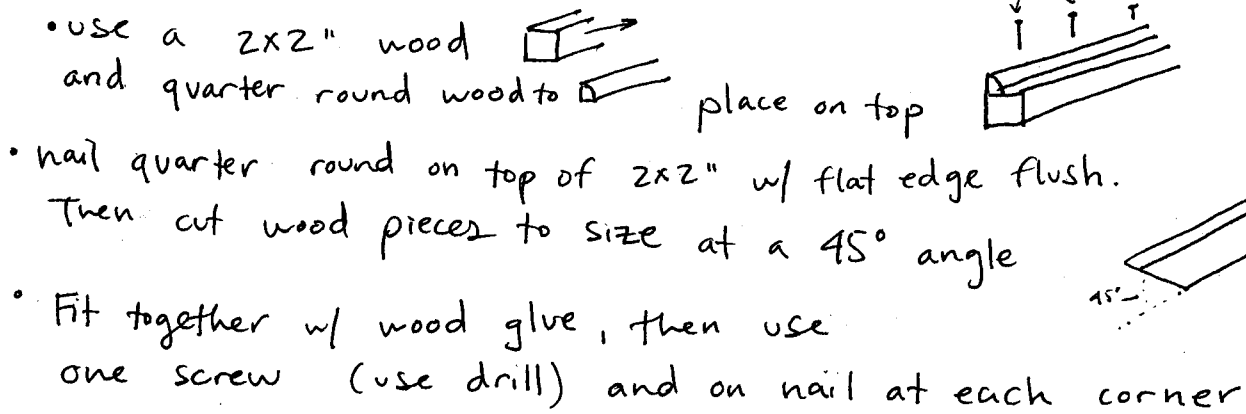 • use a 2x2" wood
and quarter round wood to place on top
• nail quarter round on top of 2x2" w/ flat edge flush.
Then cut wood pieces to size at a 45° angle
45°
• Fit together w/ wood glue, then use
one screw (use drill) and on nail at each corner